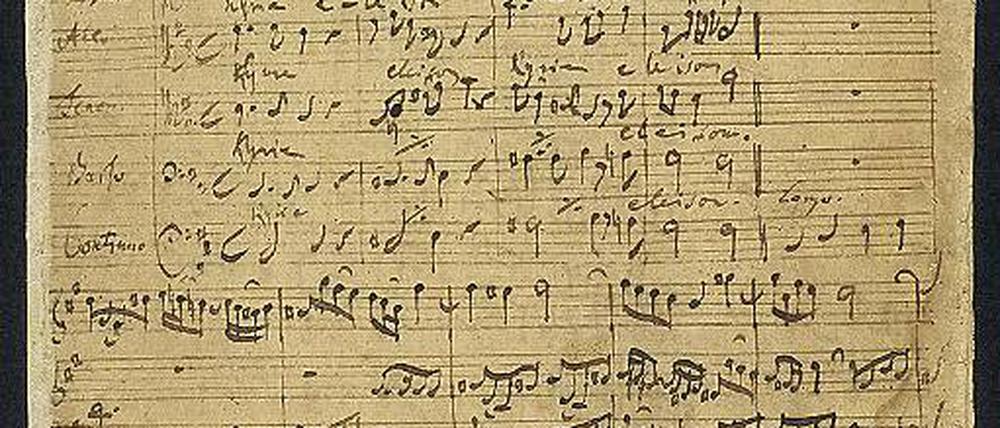 Kyrie e-le
Alto
Kyrie eleison Kyrie eleison
Tenor
eleison.
Kyrie
Basso
Kyrie eleison. Largo.
Continuo